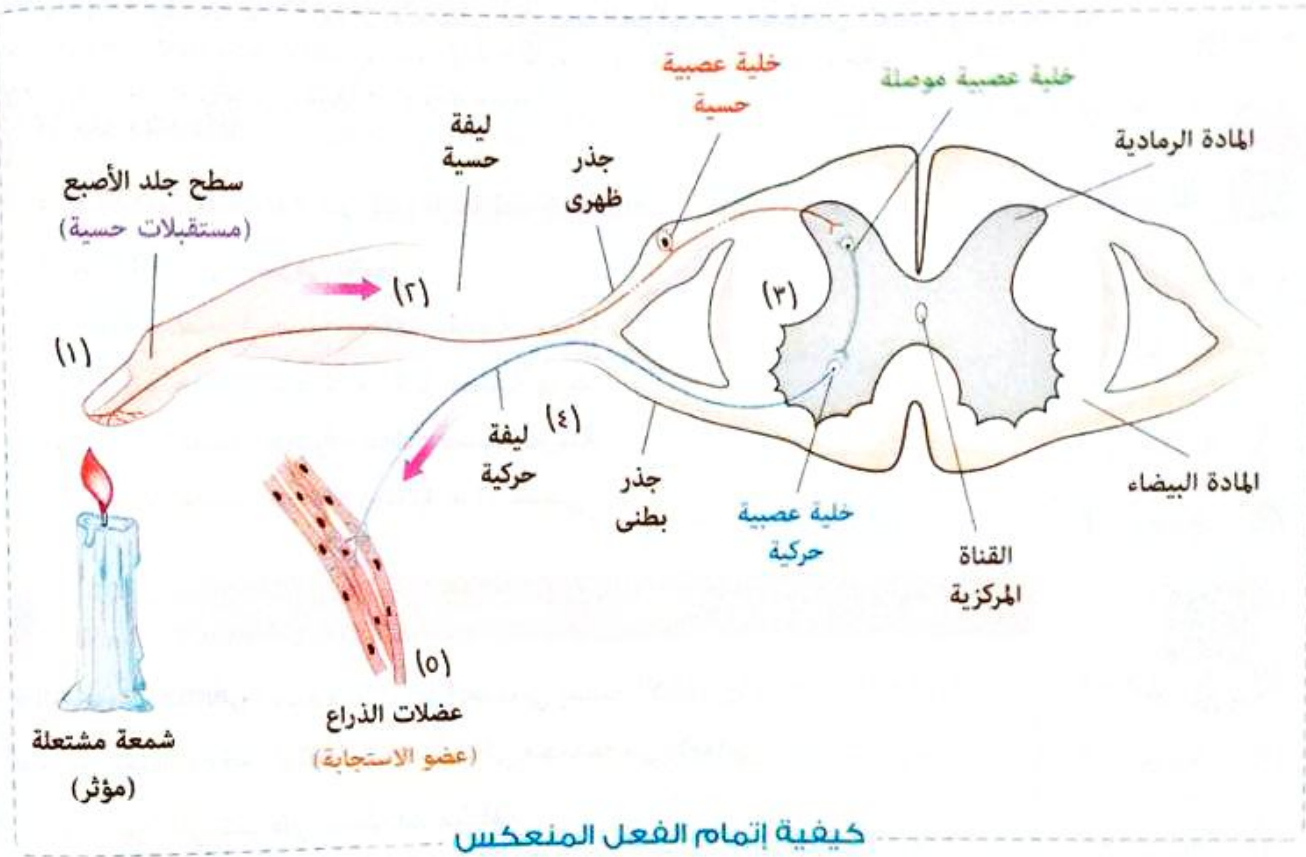 خلية عصبية
حسية
خلية عصبية موصلة
المادة الرمادية
ليفة
حسية
جذر
ظهرى
سطح جلد الأصبع
(مستقبلات حسية)
(١)
(٢)
(٣)
(٤)
ليفة
حركية
جذر
بطنى
خلية عصبية
حركية
القناة
المركزية
المادة البيضاء
(٥)
عضلات الذراع
(عضو الاستجابة)
شمعة مشتعلة
(مؤثر)
كيفية إتمام الفعل المنعكس